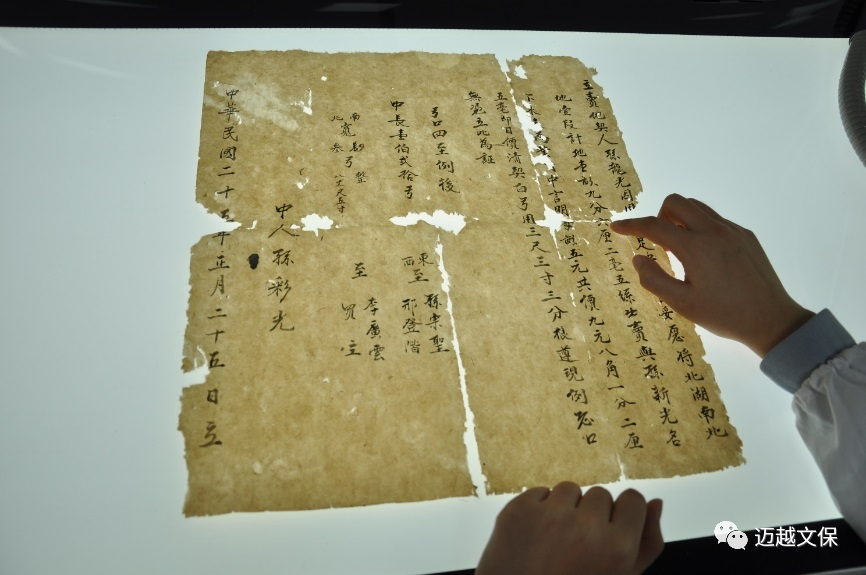 立賣地契人孫龍光因 是 妥愿将北湖南北
地壹段計地壹畝九分 厘二毫五絲出賣與孫新光名
下 中言明 畝五元共價九元八角一分二厘
五毫即日價清契白弓用三尺三寸三分後遵現例恐口
無憑立此為証
弓口四至例後
中長壹伯弍拾弓
南
北 寬 弓
東 孫宗聖
西 至 邢登階
至 李廣雲
買主
中人孫彩光
中華民國二十五年正月二十五日立
迈越文保